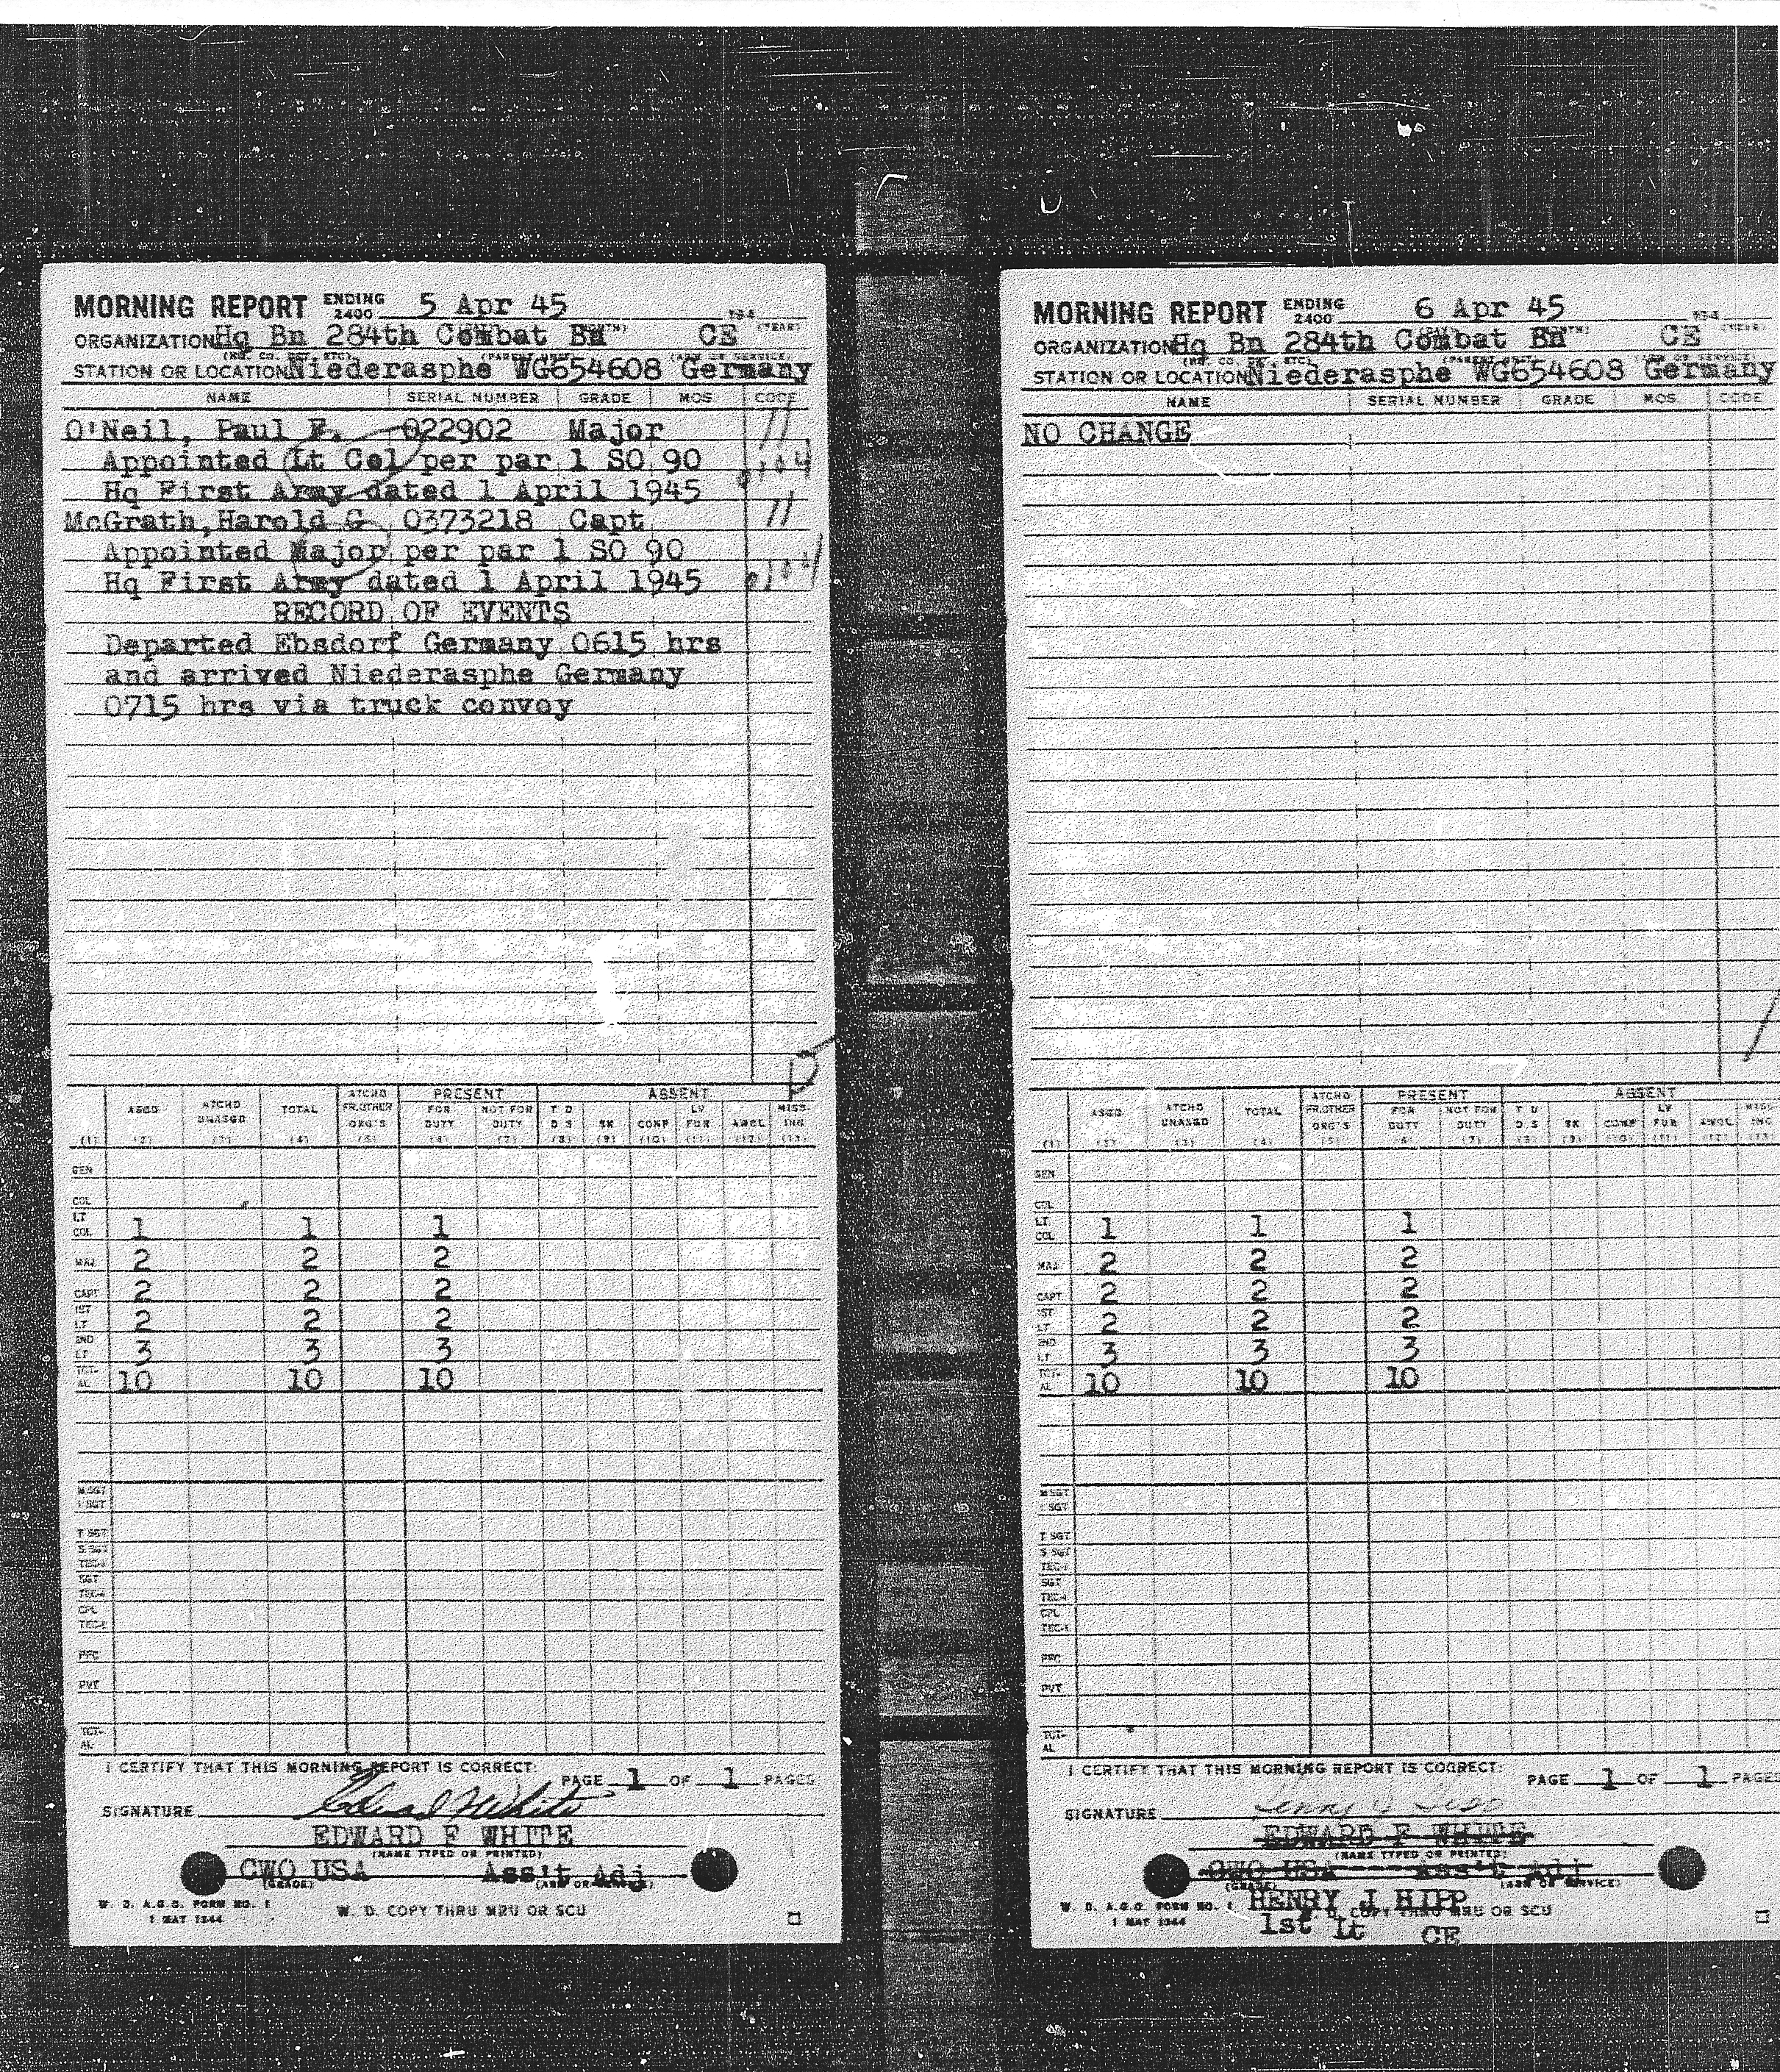 MORNING REPORT ENDING 2400 5 Apr 45 194
ORGANIZATION Hq Bn 284th Combat Bn CE
STATION OR LOCATION Niederasphe WG654608 Germany
NAME SERIAL NUMBER GRADE MOS CODE
O'Neil, Paul F. 022902 Major 11
Appointed Lt Col per par 1 SO 90
Hq First Army dated 1 April 1945
McGrath, Harold G 0373218 Capt 11
Appointed Major per par 1 SO 90
Hq First Army dated 1 April 1945
RECORD OF EVENTS
Departed Ebsdorf Germany 0615 hrs
and arrived Niederasphe Germany
0715 hrs via truck convoy
ASGD ATCHD UNASGD TOTAL ATCHD FR.OTHER ORG'S PRESENT FOR DUTY NOT FOR DUTY ABSENT T D D S SK CONF LV FUR AWOL MISSING
(1) (2) (3) (4) (5) (6) (7) (8) (9) (10) (11) (12) (13)
GEN
COL
LT COL 1 1 1
MAJ 2 2 2
CAPT 2 2 2
1ST LT 2 2 2
2ND LT 3 3 3
TOTAL 10 10 10
MSGT
1 SGT
T SGT
S SGT
TEC-3
SGT
TEC-4
CPL
TEC-5
PFC
PVT
TOTAL
I CERTIFY THAT THIS MORNING REPORT IS CORRECT:
PAGE 1 OF 1 PAGES
SIGNATURE Edward F White
EDWARD F WHITE
(NAME TYPED OR PRINTED)
CWO USA Ass't Adj
(GRADE) (ARM OR SERVICE)
W. D. A.G.O. FORM NO. 1
1 MAY 1944
W. D. COPY THRU MRU OR SCU
MORNING REPORT ENDING 2400 6 Apr 45 194
ORGANIZATION Hq Bn 284th Combat Bn CE
STATION OR LOCATION Niederasphe WG654608 Germany
NAME SERIAL NUMBER GRADE MOS CODE
NO CHANGE
ASGD ATCHD UNASGD TOTAL ATCHD FR.OTHER ORG'S PRESENT FOR DUTY NOT FOR DUTY ABSENT T D D S SK CONF LV FUR AWOL MISSING
(1) (2) (3) (4) (5) (6) (7) (8) (9) (10) (11) (12) (13)
GEN
COL
LT COL 1 1 1
MAJ 2 2 2
CAPT 2 2 2
1ST LT 2 2 2
2ND LT 3 3 3
TOTAL 10 10 10
MSGT
1 SGT
T SGT
S SGT
TEC-3
SGT
TEC-4
CPL
TEC-5
PFC
PVT
TOTAL
I CERTIFY THAT THIS MORNING REPORT IS CORRECT:
PAGE 1 OF 1 PAGES
SIGNATURE Henry J Hipp
EDWARD F WHITE
(NAME TYPED OR PRINTED)
CWO USA Ass't Adj
(GRADE) (ARM OR SERVICE)
W. D. A.G.O. FORM NO. 1
1 MAY 1944
HENRY J HIPP
W. D. COPY THRU MRU OR SCU
1st Lt CE